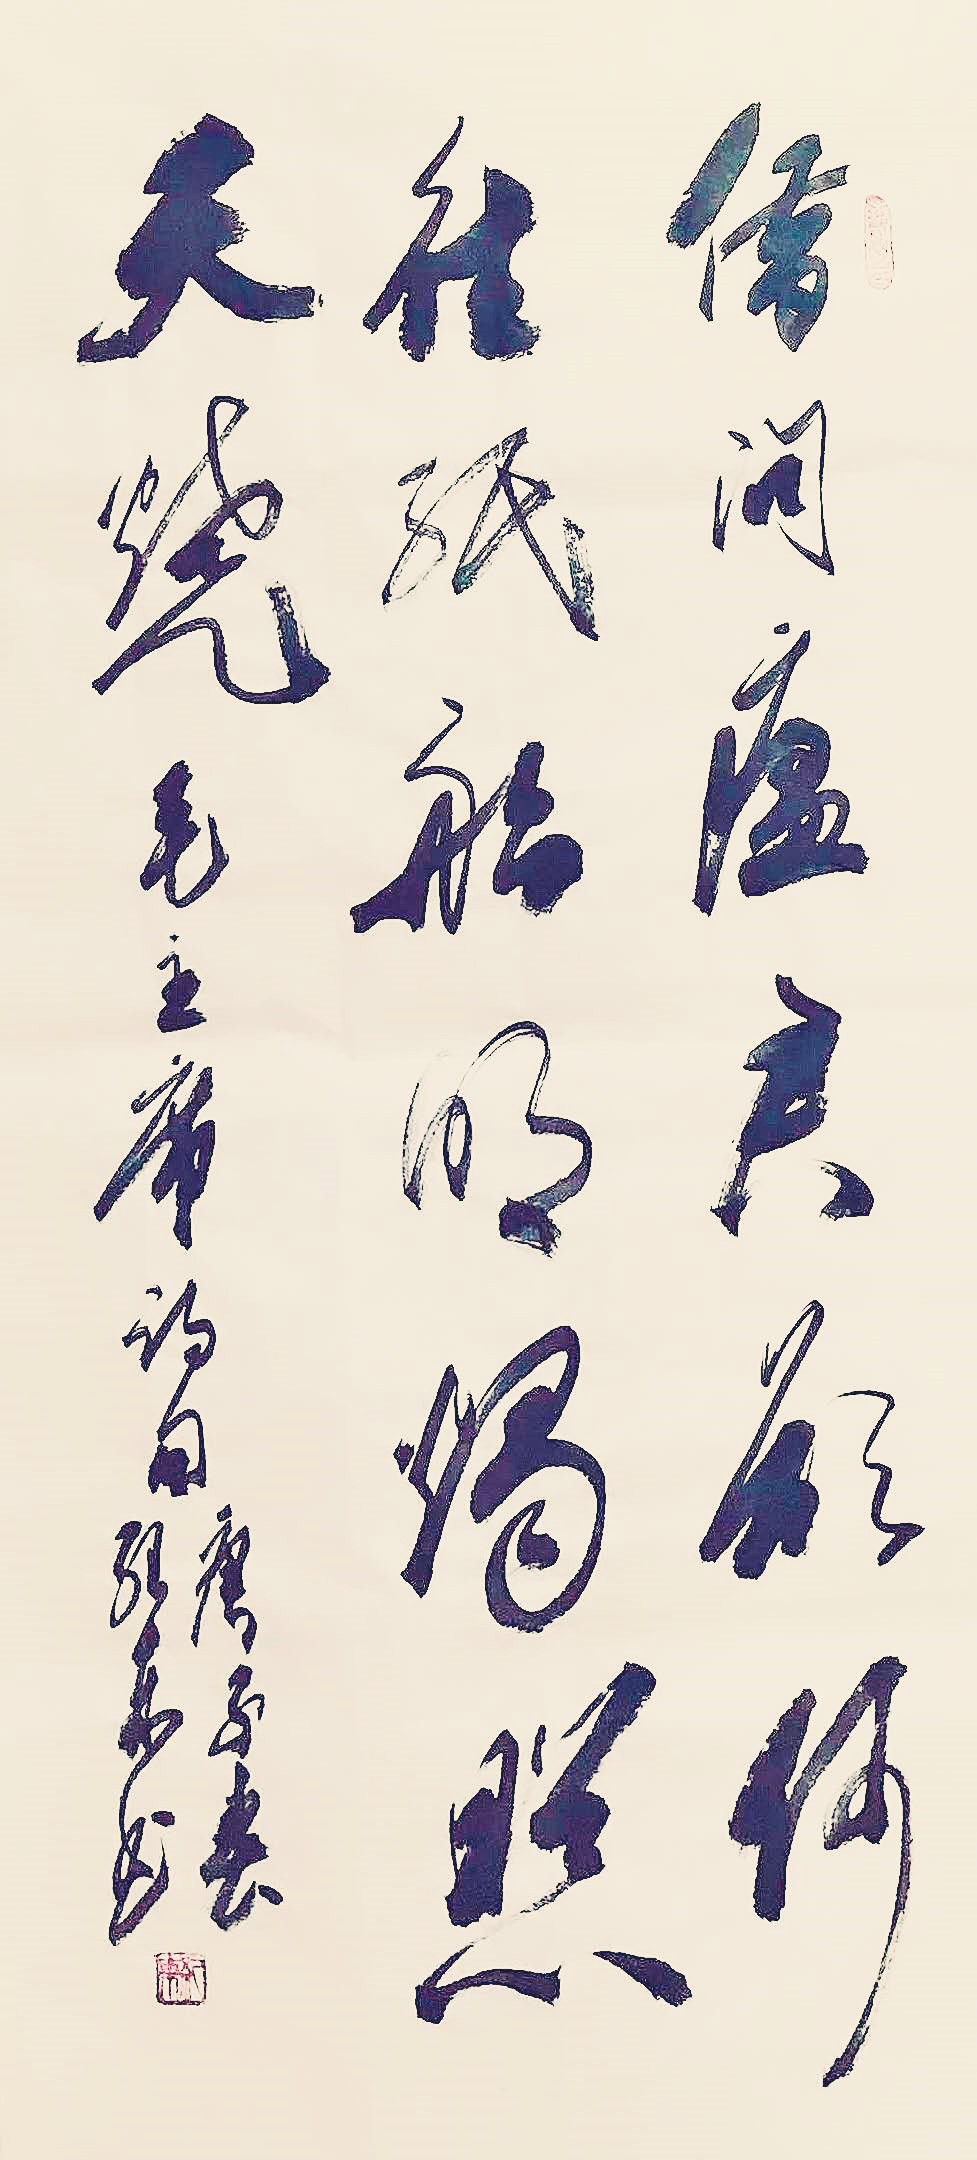 借问瘟君欲何
往纸船明烛照
天烧 毛主席诗句
庚子春